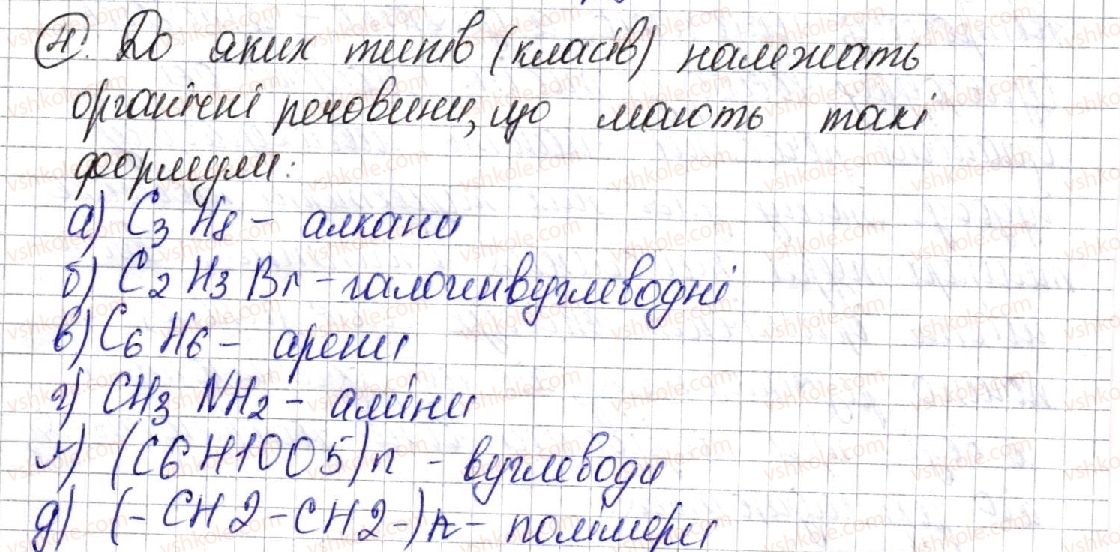 4. До яких типів (класів) належать
органічні речовини, що мають такі
формули:
а) C3 H8 - алкани
б) C2 H3 Br - галогенвуглеводні
в) C6 H6 - арени
г) CH3 NH2 - аміни
ґ) (C6H10O5)n - вуглеводи
д) (-CH2-CH2-)n - полімери